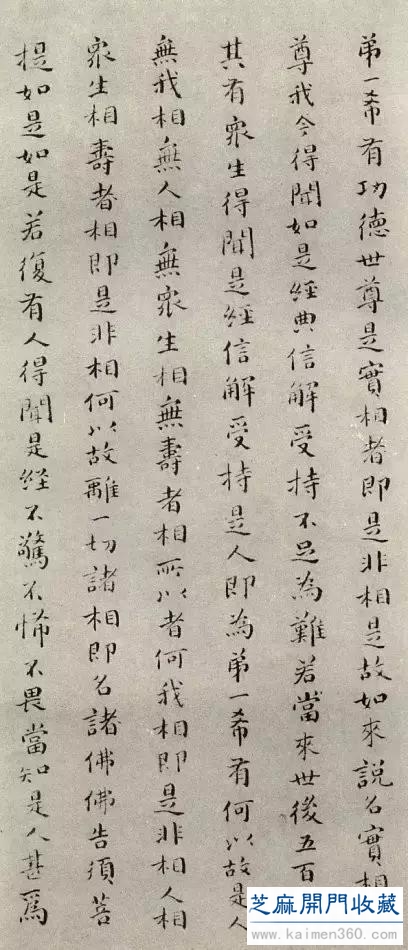 第一希有功德世尊是實相者即是非相是故如來說名實相
尊我今得聞如是經典信解受持不足為難若當來世後五百
其有衆生得聞是經信解受持是人即為第一希有何以故是人
無我相無人相無衆生相無壽者相所以者何我相即是非相人相
衆生相壽者相即是非相何以故離一切諸相即名諸佛佛告須菩
提如是如是若復有人得聞是経不驚不怖不畏當知是人甚為
芝麻開門收藏
www.kaimen360.com